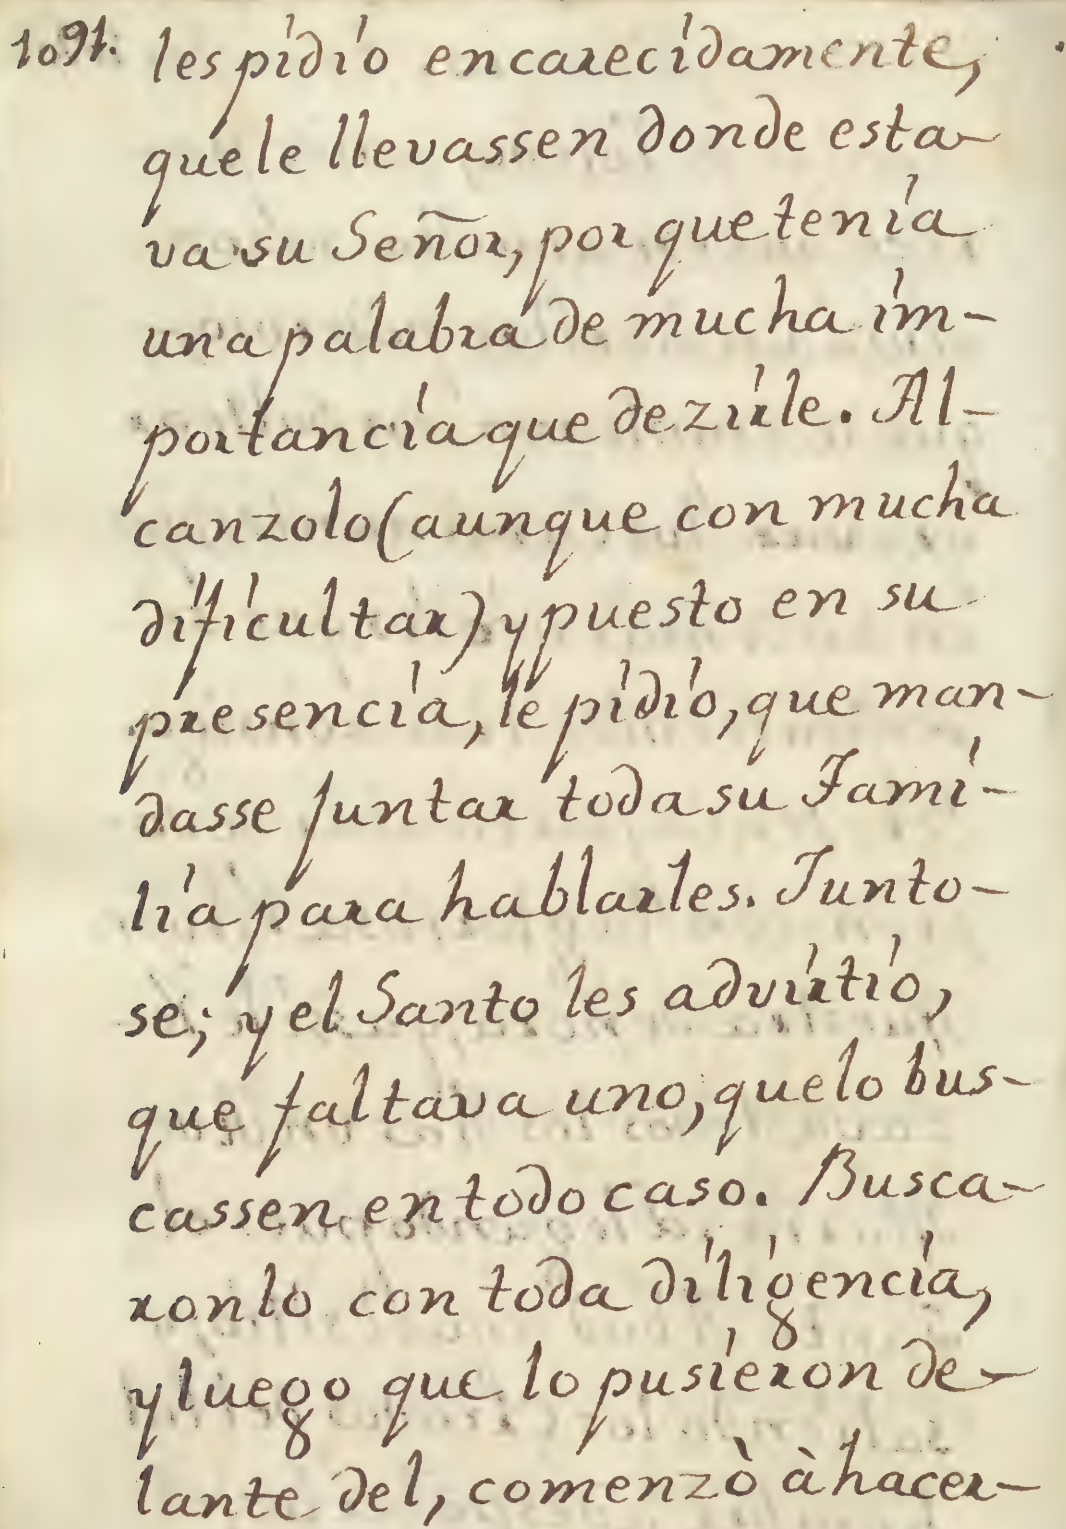 1091. les pidio encarecidamente,
que le llevassen donde esta-
va su Señor, por que tenia
una palabra de mucha im-
portancia que dezirle. Al-
canzolo (aunque con mucha
dificultar) y puesto en su
presencia, le pidio, que man-
dasse juntar toda su Fami-
lia para hablarles. Junto-
se; y el Santo les advirtio,
que faltava uno, que lo bus-
cassen en todo caso. Busca-
ronlo con toda diligencia,
y luego que lo pusieron de-
lante del, comenzò à hacer-